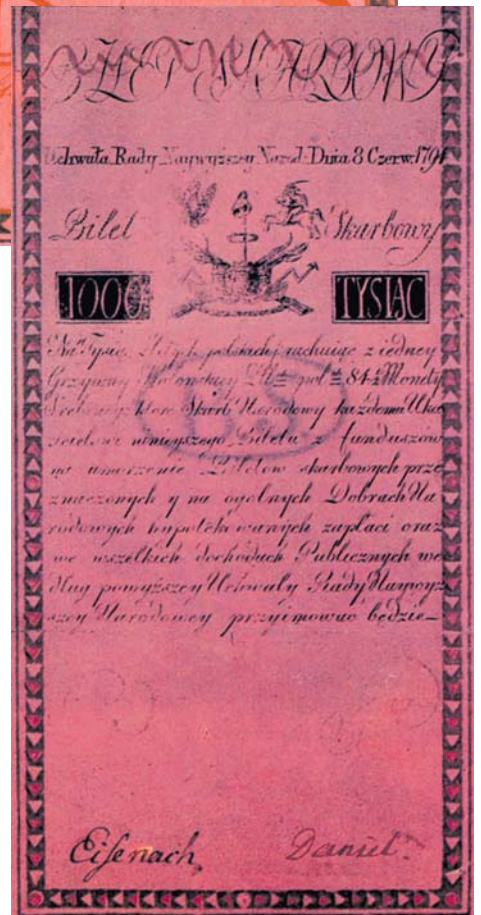 BILET SKARBOWY
Uchwała Rady Naywyższey Narod: Dnia 8 Czerw: 1794
Bilet Skarbowy
1000 TYSIĄC
Na Tysiąc Złotych polskich rachuiąc z iedney
Grzywny Kolonskiey Zł pol 84½ Monety
Srebrney ktore Skarb Narodowy każdemu Uka
zicielowi ninieyszego Biletu z funduszów
na umorzenie Biletow skarbowych prze
znaczonych y na ogolnych Dobrach Na
rodowych hypotekowanych zapłaci oraz
we wszelkich dochodach Publicznych we
dług powyższey Uchwały Rady Naywyż
szey Narodowey przyimować będzie
Eisenach Daniel